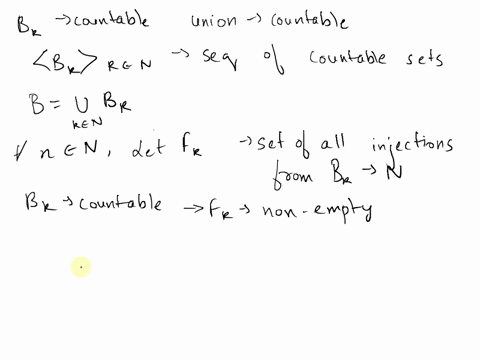 B_k → countable union → countable
<B_k>_{k∈N} → seq of countable sets
B = ∪_{k∈N} B_k
∀ n ∈ N, let F_k → set of all injections
from B_k → N
B_k → countable → F_k → non-empty